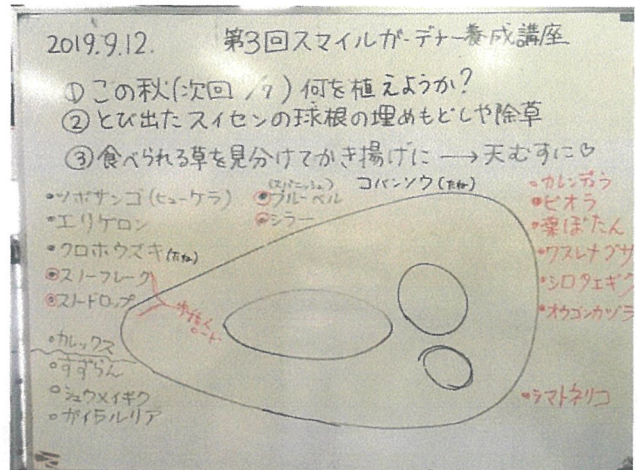 2019.9.12. 第3回スマイルガーデナー養成講座
①この秋(次回 /7)何を植えようか?
②とび出たスイセンの球根の埋めもどしや除草
③食べられる草を見分けてかき揚げに→天むすに♡
・ツボサンゴ(ヒューケラ)
・エリゲロン
・クロホウズキ(たね)
◉スノーフレーク
◉スノードロップ
・カレックス
○すずらん
○シュウメイギク
○ガイラルリア
(スパニッシュ)
◉ブルーベル
◉シラー
コバンソウ(たね)
ロード
・カレンデュラ
・ビオラ
・葉ぼたん
・ワスレナグサ
・シロタエギク
・オウゴンカヅラ
・シマトネリコ